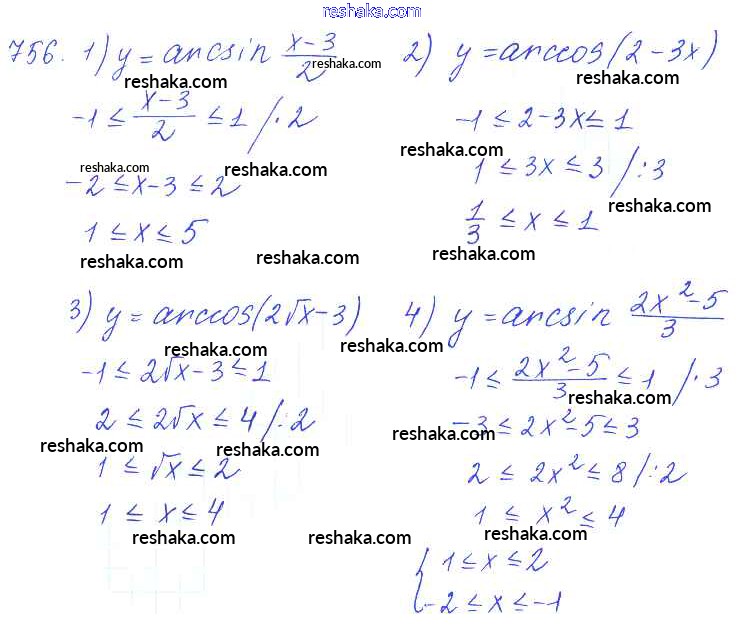 reshaka.com
756. 1) y = arcsin (x-3)/2
reshaka.com reshaka.com
-1 ≤ (x-3)/2 ≤ 1 /·2
reshaka.com reshaka.com
-2 ≤ x-3 ≤ 2
1 ≤ x ≤ 5
reshaka.com reshaka.com
2) y = arccos(2-3x)
reshaka.com
-1 ≤ 2-3x ≤ 1
reshaka.com
1 ≤ 3x ≤ 3 /:3
reshaka.com
1/3 ≤ x ≤ 1
3) y = arccos(2√x-3)
reshaka.com reshaka.com
-1 ≤ 2√x-3 ≤ 1
2 ≤ 2√x ≤ 4 /:2
reshaka.com reshaka.com
1 ≤ √x ≤ 2
1 ≤ x ≤ 4
reshaka.com reshaka.com
4) y = arcsin (2x²-5)/3
-1 ≤ (2x²-5)/3 ≤ 1 /·3
reshaka.com
reshaka.com
-3 ≤ 2x²-5 ≤ 3
2 ≤ 2x² ≤ 8 /:2
1 ≤ x² ≤ 4
reshaka.com
{ 1 ≤ x ≤ 2
-2 ≤ x ≤ -1
reshaka.com